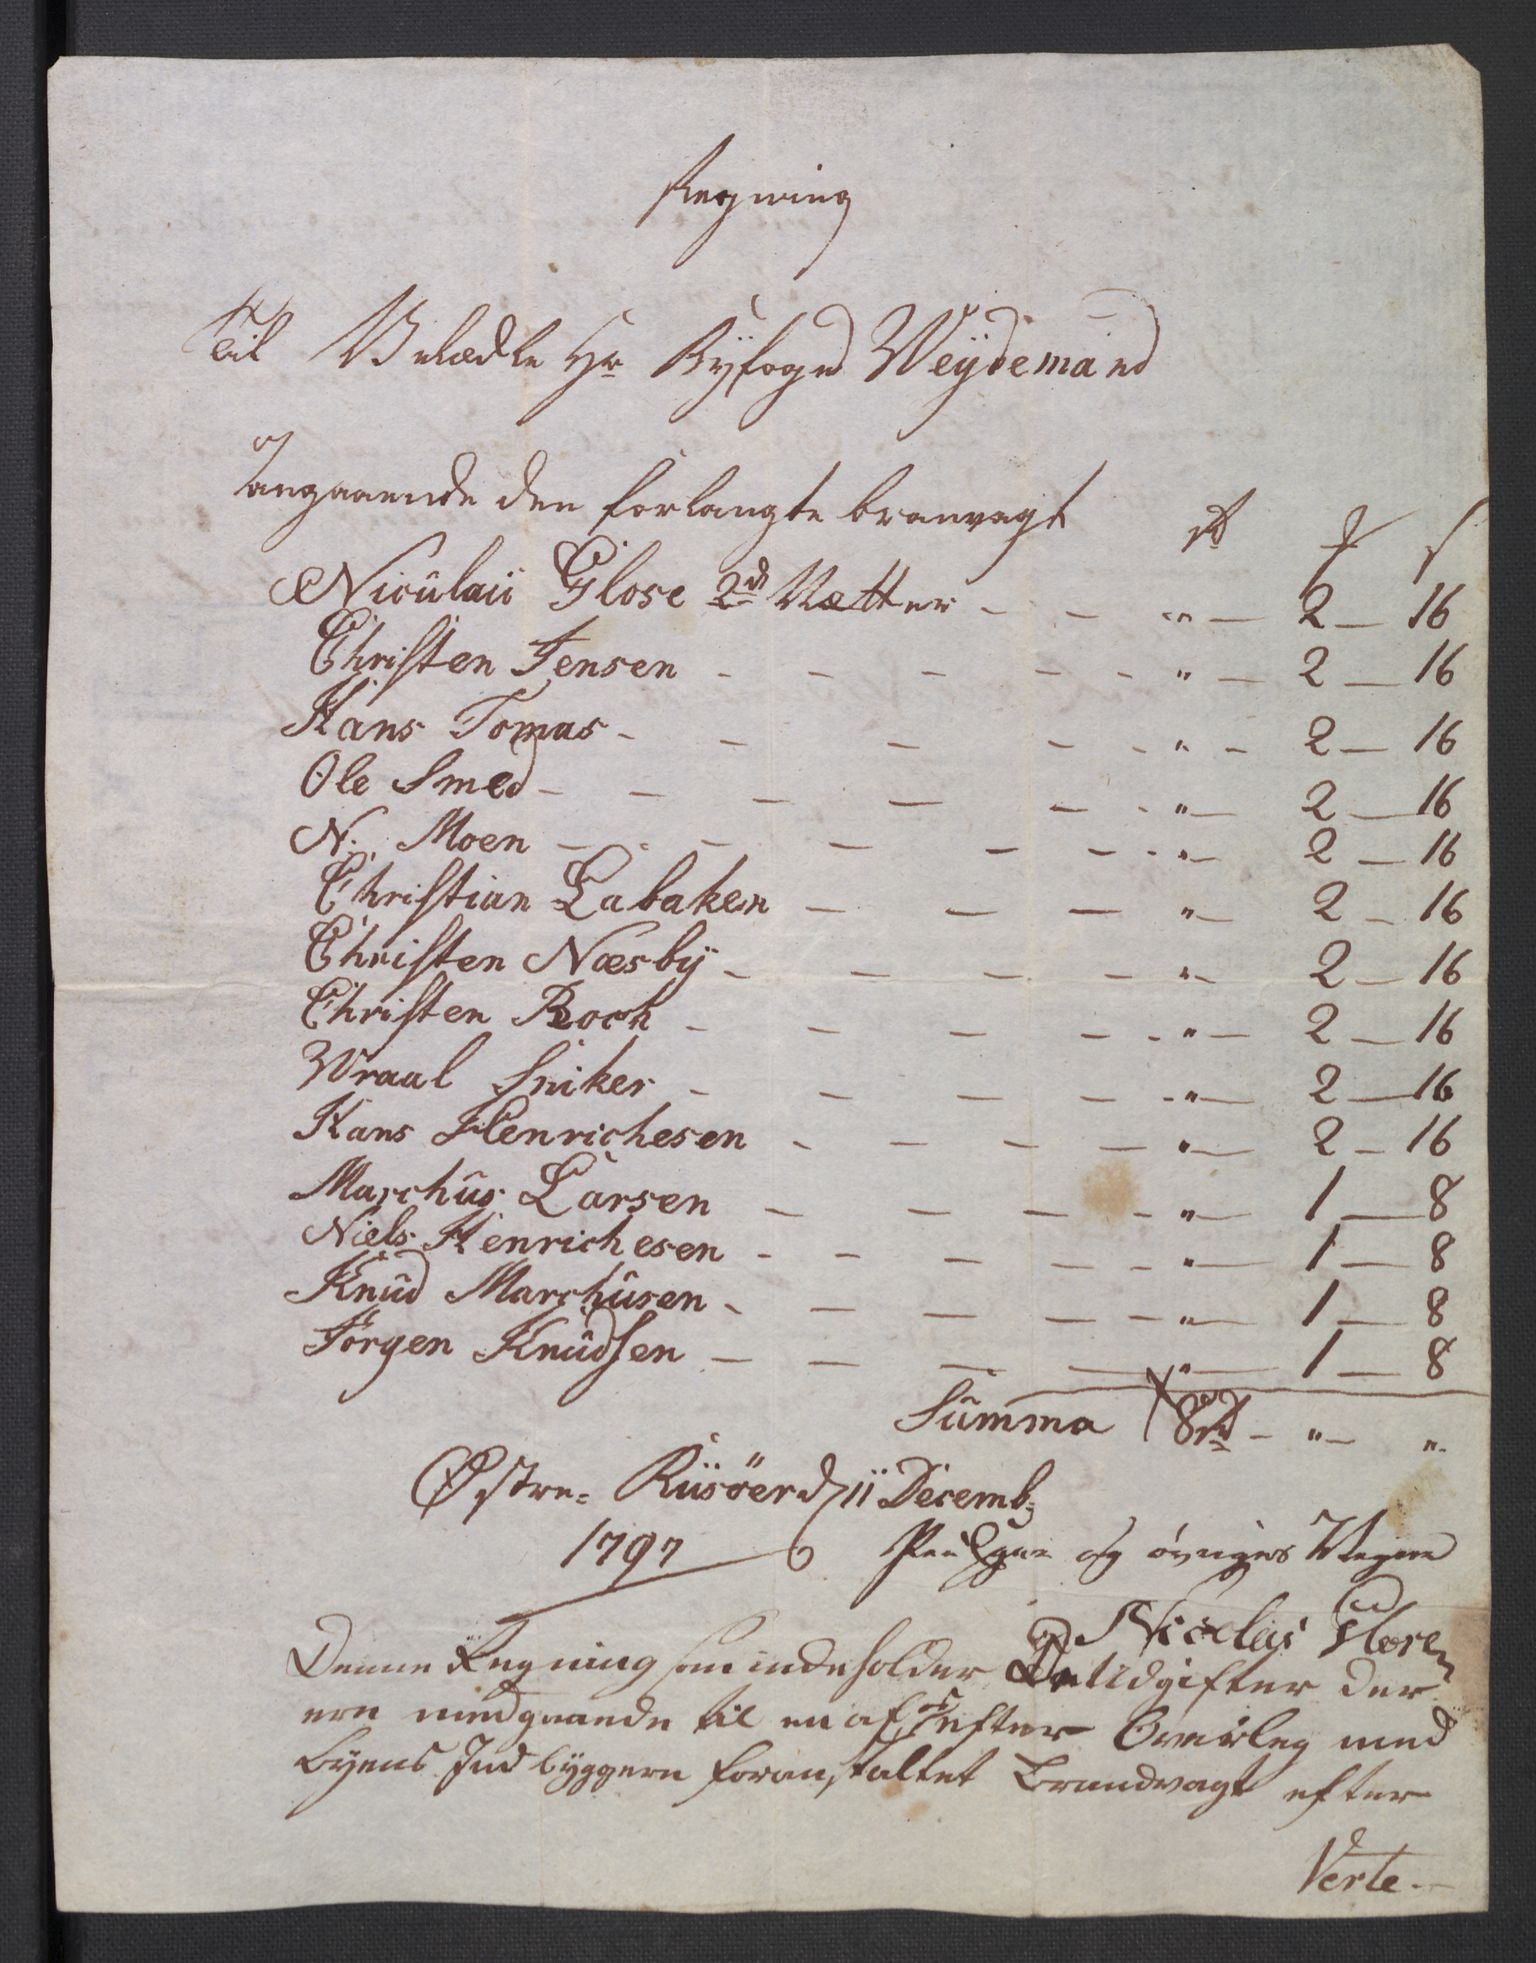 Regning
Til Velædle Hr Byfoged Weydemand
angaaende den forlangte branvagt rd ₰ s
Niculaii Glose 2de Nætter - - " - 2 - 16
Christen Jensen - - - - - " - 2 - 16
Hans Tomas - - - - - " - 2 - 16
Ole Smed - - - - - - " - 2 - 16
N. Moen - - - - - - " - 2 - 16
Christian Labaken - - - " - 2 - 16
Christen Næsbÿ - - - - " - 2 - 16
Christen Bock - - - - - " - 2 - 16
Wraal Sniker - - - - - " - 2 - 16
Hans Henrichesen - - - - " - 2 - 16
Marchus Larsen - - - - " - 1 - 8
Niels Henrichesen - - - - - " - 1 - 8
Knud Marchusen - - - - - " - 1 - 8
Jörgen Knudsen - - - - " - 1 - 8
Summa 8rd - " - "
Østre= Riisöer d 11 Decemb:
1797 Paa Egne og øvriges Vegne
Nicolai Glose
Denne Regning som indeholder De Udgifter der
ere medgaaende til en af efter Overleg med
Byens Indbyggere foranstaltet Brandvagt efter
Verte.